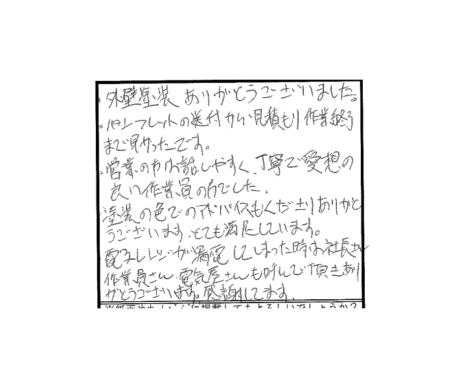 外壁塗装 ありがとうございました。
パンフレットの送付から見積もり作業終了
まで早かったです。
営業の方は話しやすく、丁寧で愛想の
良い作業員の方でした。
塗装の色でのアドバイスもくださりありがと
うございます、とても満足しています。
電子レンジが漏電してしまった時は社長さん
作業員さん、電気屋さんも呼んで頂きあり
がとうございます。感謝してます。